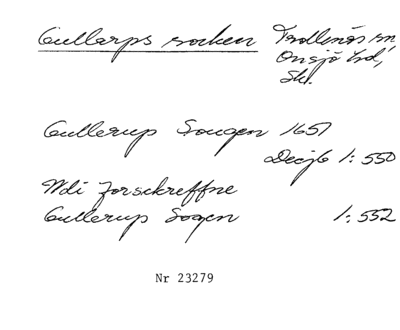 Gullarps socken Trollenäs sn,
Onsjö hd,
Sk.
Gullerup Sougen 1651
Decjb 1: 550
Udi forsckreffne
Gullerup Sogen 1: 552
Nr 23279